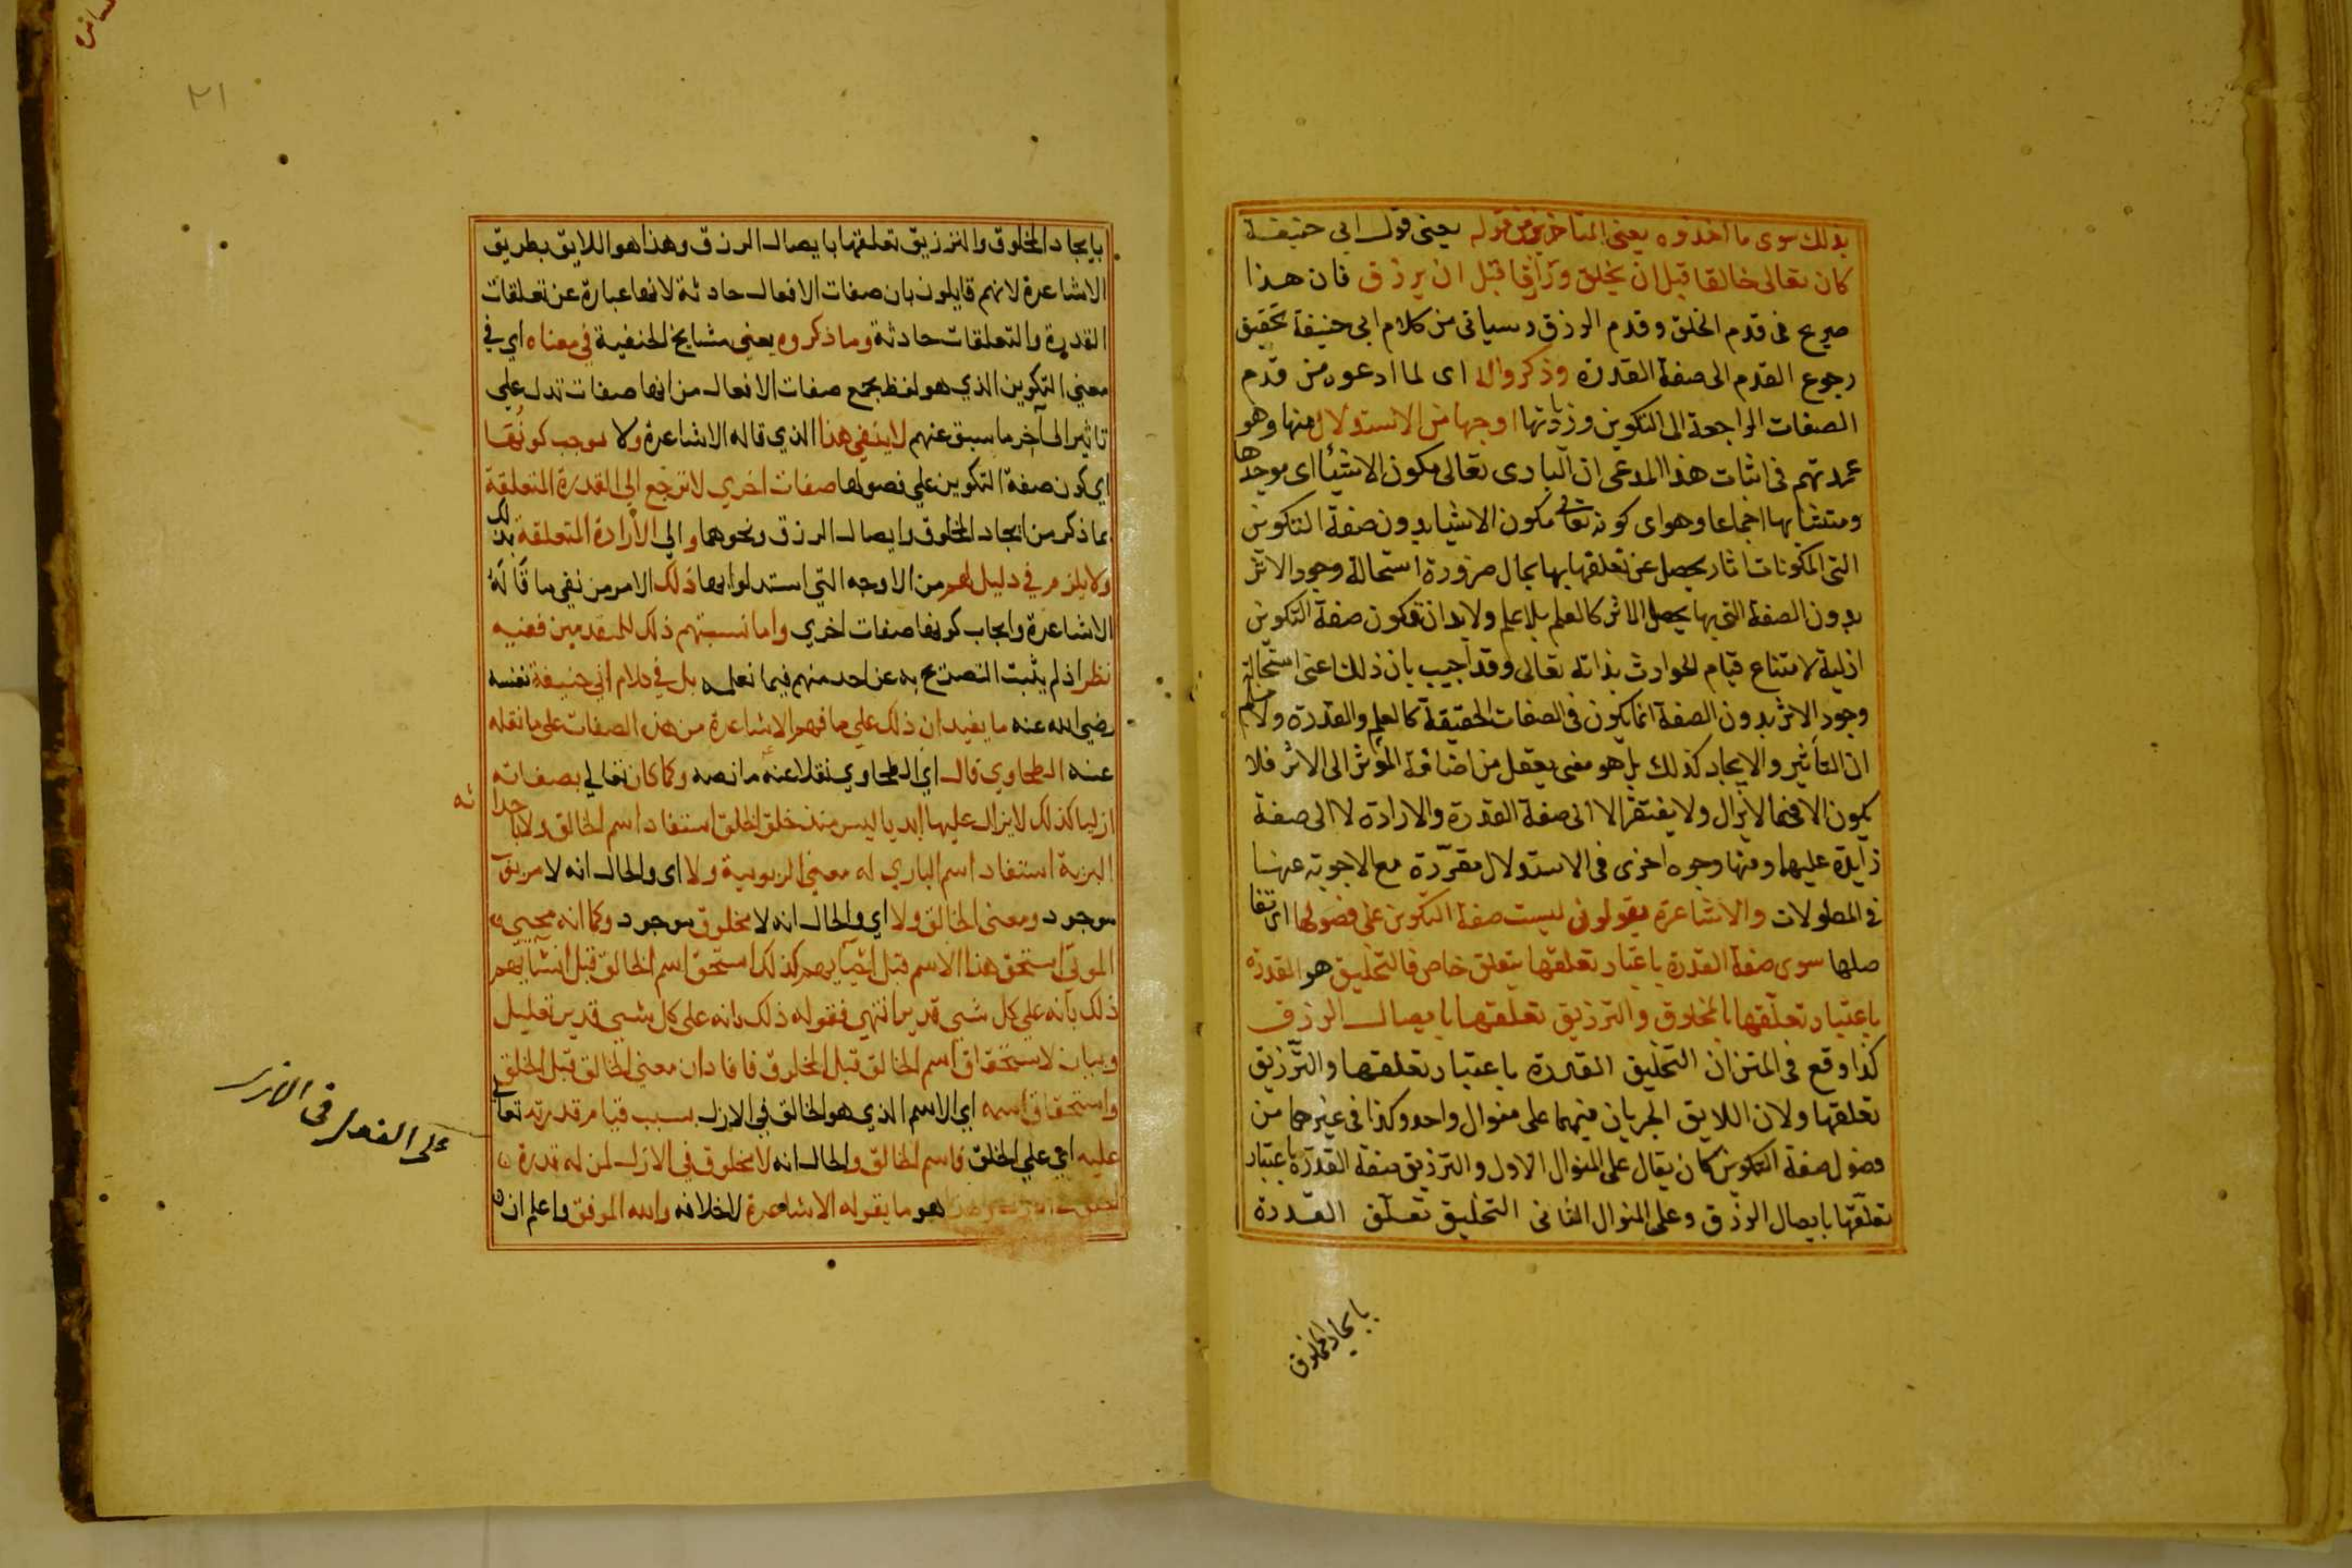 بذلك سوى ما اخذوه يعنى المتاخرين من قوله يعنى قول ابى حنيفة
كان تعالى خالقا قبل ان يخلق ورازقا قبل ان يرزق فان هذا
صريح فى قدم الخلق وقدم الرزق وسياتى من كلام ابى حنيفة تحقيق
رجوع القدم الى صفة القدرة وذكروا له اى لما ادعوه من قدم
الصفات الراجعة الى التكوين وزيادتها اوجها من الاستدلال منها وهو
عمدتهم فى اثبات هذا المدعى ان البارى تعالى مكون الاشياء اى موجدها
ومنشئها اجماعا وهو اى كونه تعالى مكون الاشيا بدون صفة التكوين
التى المكونات اثار يحصل عن تعلقها بها محال ضرورة استحالة وجود الاثر
بدون الصفة التى بها يحصل الاثر كالعلم بلا علم ولابد ان تكون صفة التكوين
ازلية لامتناع قيام الحوادث بذاته تعالى وقد اجيب بان ذلك اعنى استحالة
وجود الاثر بدون الصفة انما يكون فى الصفات الحقيقة كالعلم والقدرة ولا نسلم
ان التأثير والايجاد كذلك بل هو معنى يعقل من اضافة المؤثر الى الاثر فلا
يكون الا فيما لا يزال ولا يفتقر الا الى صفة القدرة والارادة لا الى صفة
زايدة عليهما ومنها وجوه اخرى فى الاستدلال مقررة مع الاجوبة عنها
فى المطولات والاشاعرة يقولون ليست صفة التكوين على فصولها اى تفا
صلها سوى صفة القدرة باعتبار تعلقها بتعلق خاص فالتخليق هو القدرة
باعتبار تعلقها بالمخلوق والترزيق تعلقها بايصال الرزق
كذا وقع فى المتن ان التخليق القدرة باعتبار تعلقها والترزيق
تعلقها ولان اللايق الجريان فيهما على منوال واحد وكذا فى غيرهما من
فصول صفة التكوين كان يقال على المنوال الاول والترزيق صفة القدرة باعتبار
تعلقها بايصال الرزق وعلى المنوال الثانى التخليق تعلق القدرة
بايجاد المخلوق
٢١
بايجاد المخلوق والترزيق تعلقها بايصال الرزق وهذا هو اللايق بطريق
الاشاعرة لانهم قايلون بان صفات الافعال حادثة لانها عبارة عن تعلقات
القدرة والتعلقات حادثة وما ذكروه يعني مشايخ الحنفية في معناه اي في
معني التكوين الذي هو لفظ يجمع صفات الافعال من انها صفات تدل علي
تاثير الي آخر ما سبق عنهم لا ينفي هذا الذي قاله الاشاعرة ولا يوجب كونها
اي كون صفة التكوين علي فصولها صفات اخري لا ترجع الي القدرة المتعلقة
بما ذكر من ايجاد المخلوق وايصال الرزق ونحوهما والي الارادة المتعلقة بذلك
ولا يلزم في دليل لهم من الاوجه التي استدلوا بها ذلك الامر من نفي ما قاله
الاشاعرة وايجاب كونها صفات اخري واما نسبتهم ذلك للمتقدمين ففيه
نظر اذ لم يثبت التصريح به عن احد منهم فيما نعلمه بل في كلام ابي حنيفة نفسه
رضي الله عنه ما يفيد ان ذلك علي ما فهم الاشاعرة من هذه الصفات علي ما نقله
عنه الطحاوي قال اي الطحاوي نقلا عنه ما نصه وكما كان تعالي بصفاته
ازليا كذلك لا يزال عليها ابديا ليس منذ خلق الخلق استفاد اسم الخالق ولا باحدا
ثه
البرية استفاد اسم الباري له معني الربوبية ولا اى والحال انه لا مربوب
موجود ومعني الخالق ولا اي والحال انه لا مخلوق موجود وكما انه محيي
الموتي استحق هذا الاسم قبل احيايهم كذلك استحق اسم الخالق قبل انشايهم
ذلك بأنه علي كل شي قدير انتهي فقوله ذلك بانه علي كل شي قدير تعليل
وبيان لاستحقاق اسم الخالق قبل المخلوق فافاد ان معني الخالق قبل الخلق
واستحقاق اسمه اي الاسم الذي هو الخالق في الازل بسبب قيام قدرته تعالي
عليه اي علي الخلق فاسم الخالق والحال انه لا مخلوق في الازل لمن له قدرة
هو ما يقوله الاشاعرة لا خلافه والله الموفق واعلم ان
على الفعل فى الازل